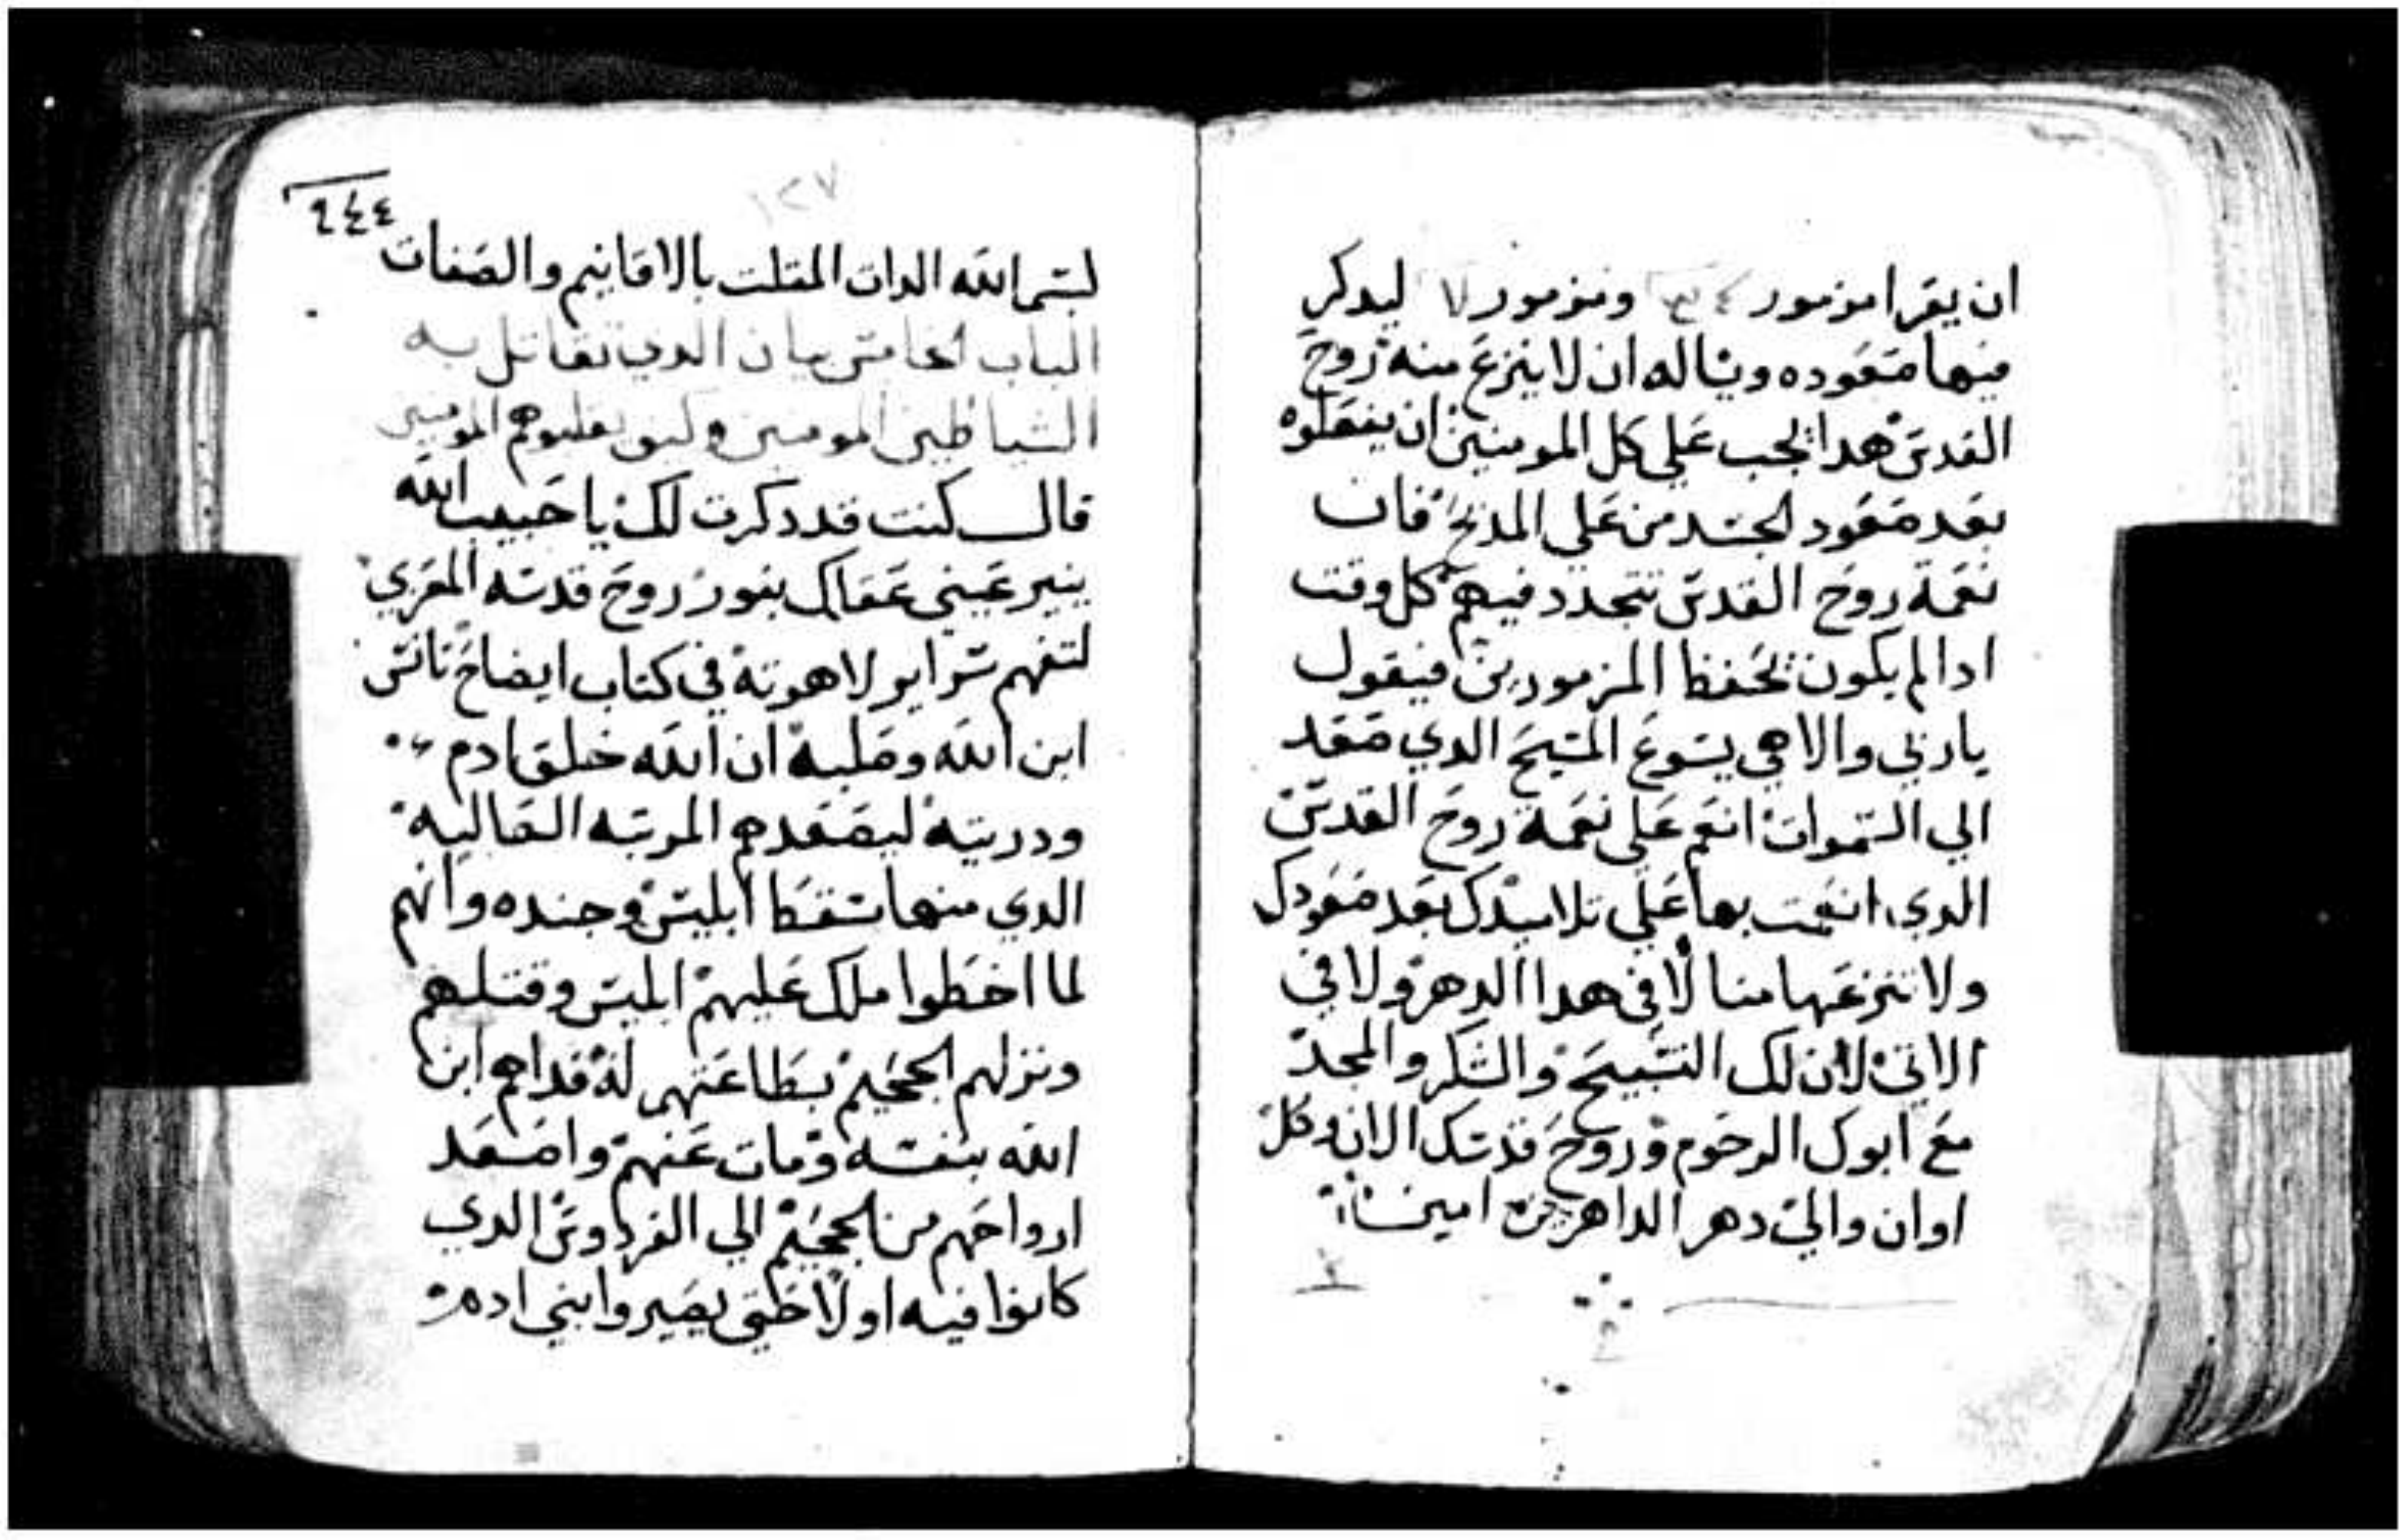 ان يقرا مزمور ومزمور ليدكر
فيها صعوده ويساله ان لا ينزع منه روح
القدس هدا يجب علي كل المومنين ان يفعلوه
بعد صعود الجسد من علي المدبح فان
نعمة روح القدس تتجدد فيهم كل وقت
ادا لم يكون يحفظ المزمورين فيقول
يا ربي والاهي يسوع المسيح الدي صعد
الي السموات انعم علي نعمة روح القدس
الدي انعمت بها علي تلاميدك بعد صعودك
ولا تنزعها منا لا في هدا الدهر ولا في
الاتي لان لك التسبيح والشكر والمجد
مع ابوك الرحوم وروح قدسك الان وكل
اوان والي دهر الداهرين امين
٢٤٤
١٢٧
بسم الله الدات المتلت بالاقانيم والصفات
الباب الخامس بيان الدي تقاتل به
الشياطين المومنين وكيف يغلبوهم المومنين
قال كنت قد دكرت لك يا حبيب الله
ينير عيني عقلك بنور روح قدسه المعزي
لتفهم سراير لاهوته في كتاب ايضاح تانس
ابن الله وصلبه ان الله خلق ادم
ودريته ليصعدهم المرتبه العاليه
الدي منها سقط ابليس وجنده وانهم
لما اخطوا ملك عليهم ابليس وقتلهم
ونزلهم الجحيم بطاعتهم له فداهم ابن
الله بنفسه ومات عنهم واصعد
ارواحهم من الجحيم الي الفردوس الدي
كانوا فيه اولا حتي يصيروا بني ادم